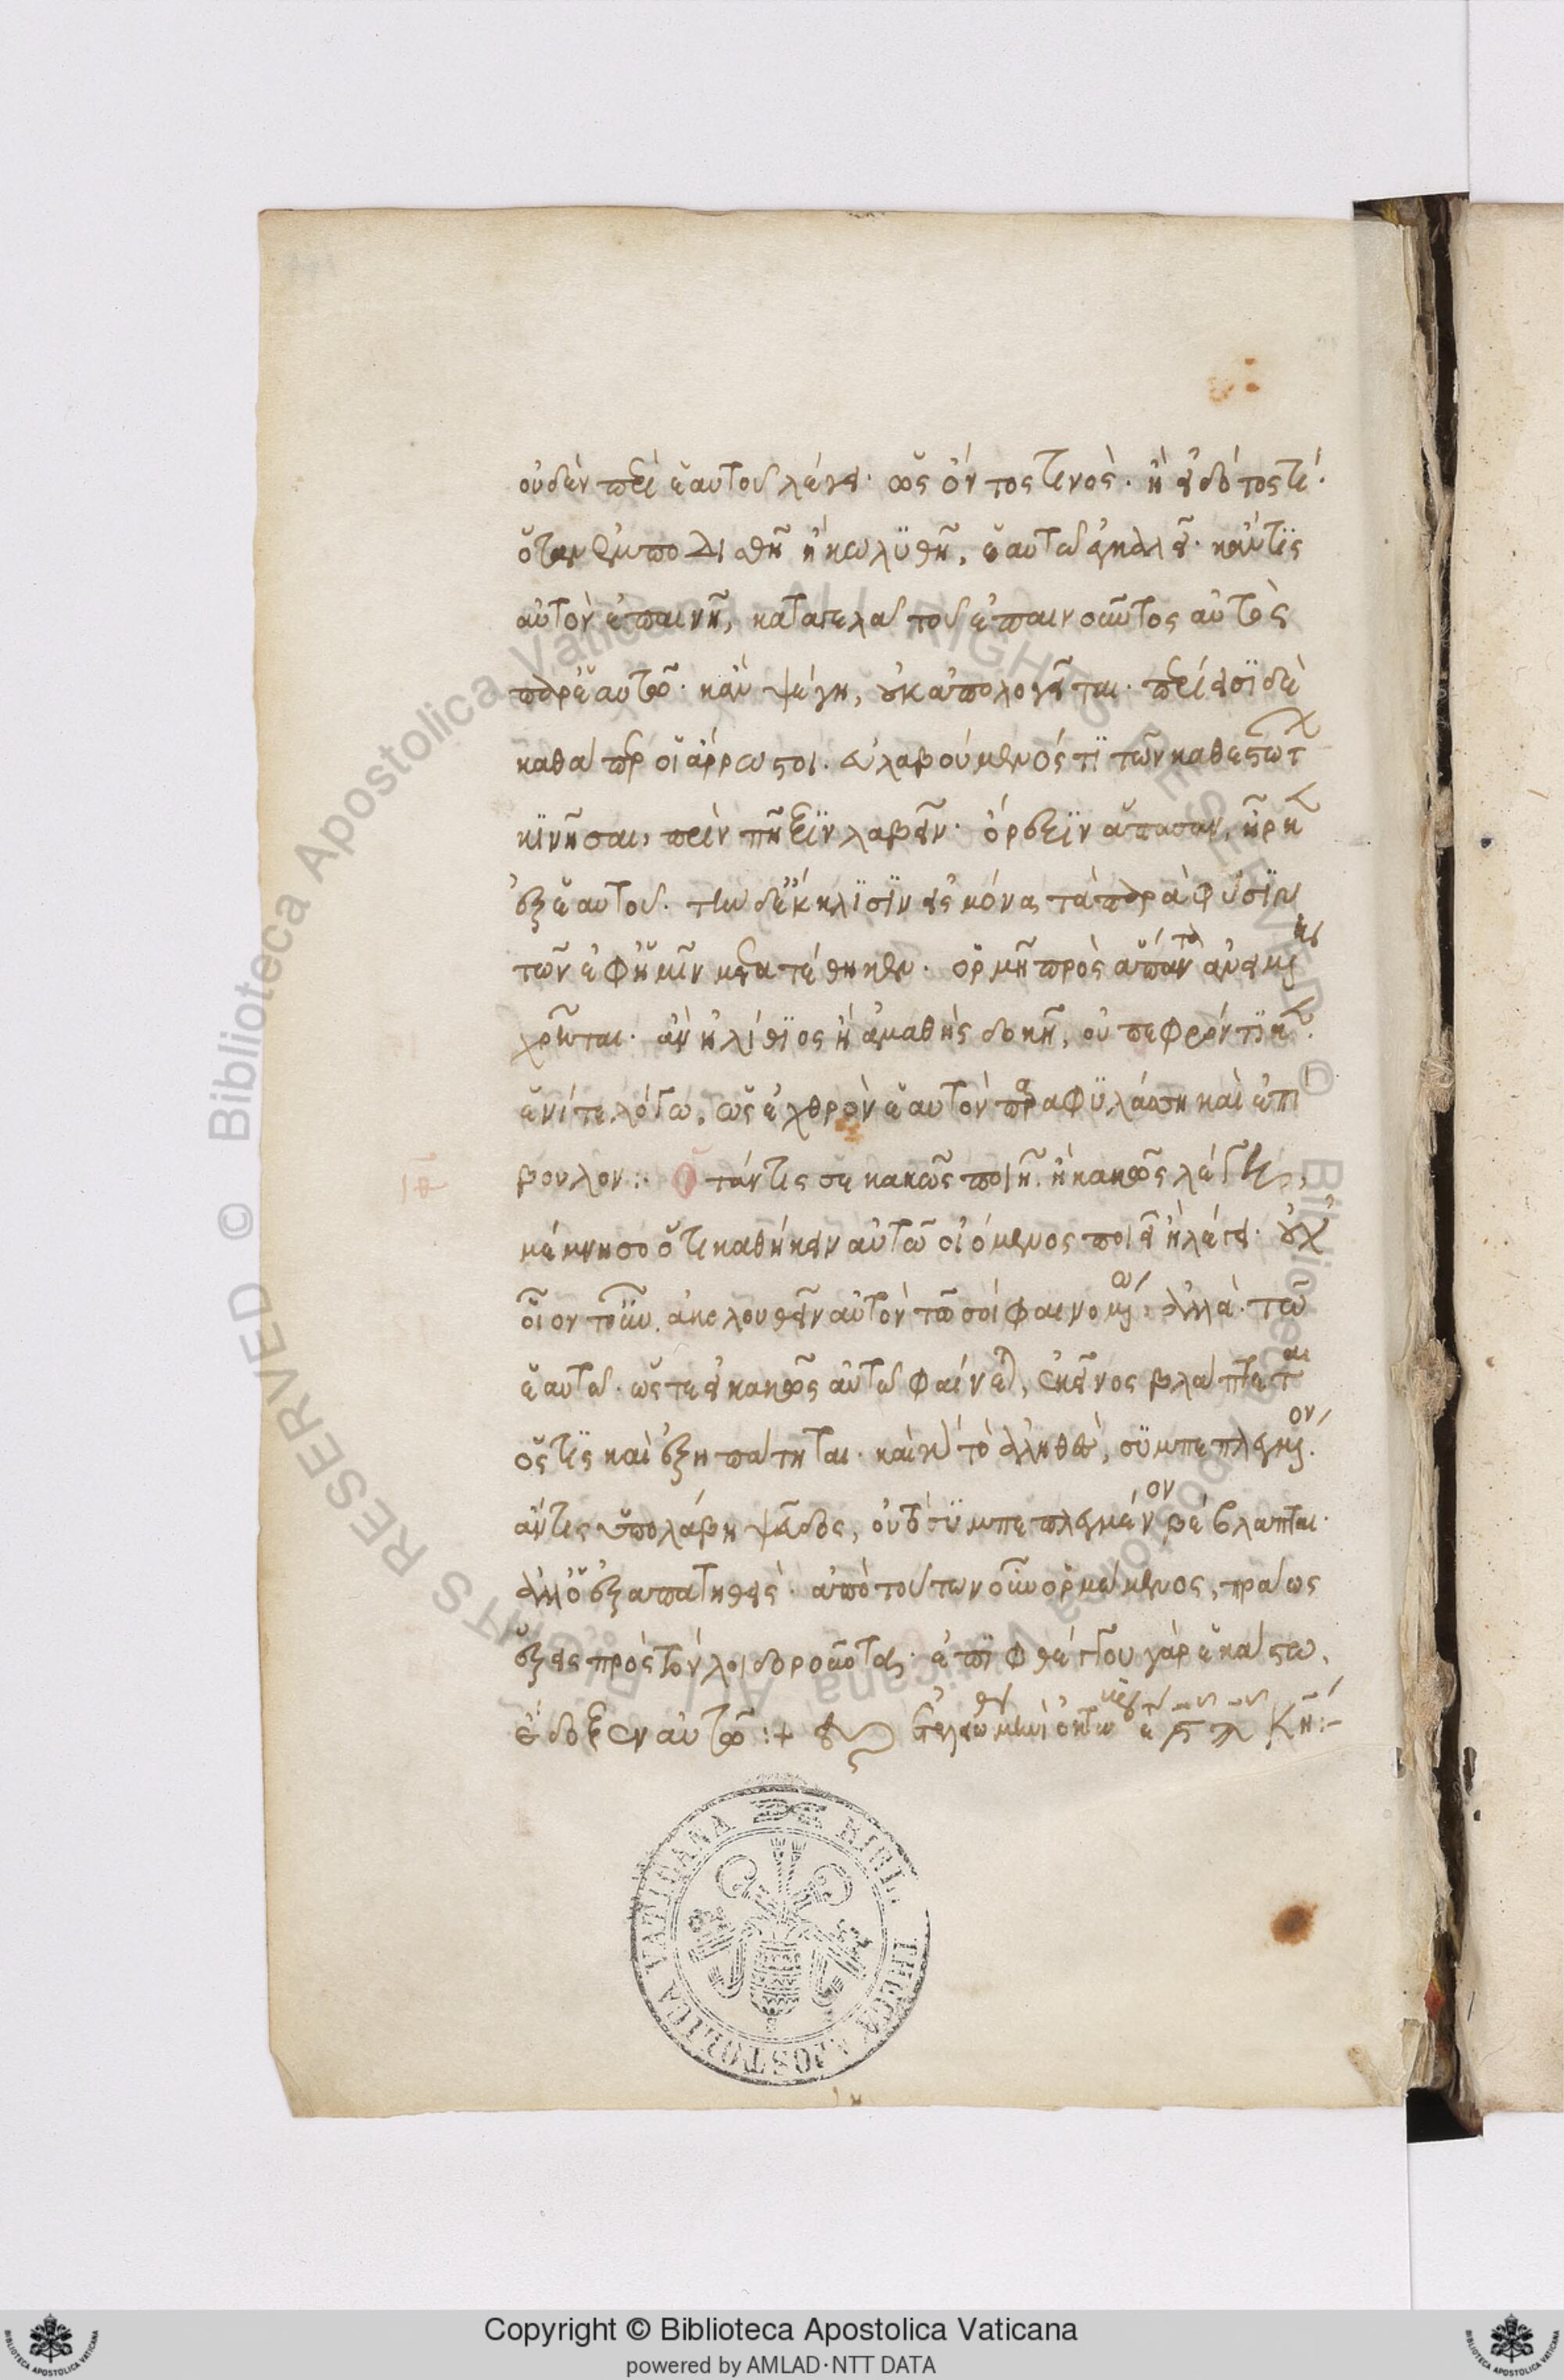 οὐδὲν περὶ ἑαυτοῦ λέγει· ὡς ὄντος τινὸς· ἢ εἰδότος τί·
ὅταν ἐμποδισθῆ ἢ κωλϋθῆ, ἑαυτῶ ἐγκαλεῖ· κἄν τϊς
αὐτὸν ἐπαινῆ, καταγελᾶ τοῦ ἐπαινοῦντος αὐτὸς
παρ' ἑαυτῶ· κἂν ψέγη, οὐκ ἀπολογεῖται· περίεισϊ δὲ
καθάπερ οἱ ἄρρωστοι. εὐλαβούμενός τϊ τῶν καθεστώτων
κϊνῆσαι, πρὶν πῆξϊν λαβεῖν· ὄρεξϊν ἅπασαν, ἦρκεν
ἐξ ἑαυτοῦ. τὴν δ' ἔκκλϊσϊν εἰς μόνα τὰ παρὰ φύσϊν
τῶν ἐφ' ἡμῖν μετατέθηκεν. ὁρμῆ πρὸς ἅπαντα ἀνειμένη
χρῆται· ἂν ἠλίθϊος ἢ ἀμαθὴς δοκῆ, οὐ πεφρόντϊκεν.
ἑνί τε λόγω, ὡς ἐχθρὸν ἑαυτὸν παραφϋλάσση καὶ ἐπί
βουλον:· Ὅταν τις σε κακῶς ποιῆ. ἢ κακῶς λέγη,
μέμνησο ὅτι καθήκειν αὐτῶ οἰόμενος ποιεῖ ἢ λέγει· οὐχ
οἷόν τ' οὖν. ἀκολουθεῖν αὐτὸν τῶ σοί φαινομένω· ἀλλὰ· τῶ
ἑαυτῶ· ὥστε εἰ κακῶς αὐτῶ φαίνεται, ἐκεῖνος βλάπτεται
ὅστϊς καὶ ἐξηπάτηται· καὶ γὰρ τὸ ἀληθὲς, σϋμπεπλεγμένον.
ἄν τις ὑπολάβη ψεῦδος, οὐ τὸ σϋμπεπλεγμένον βέβλαπται·
ἀλλ' ὁ ἐξαπατηθείς· ἀπὸ τούτων οὖν ὁρμώμενος, πράως
ἕξεις πρὸς τὸν λοιδοροῦντα· ἐπϊφθέγγου γὰρ ἑκάστω.
ἔδοξεν αὐτῶ:+
BIBLIOTHECA APOSTOLICA VATICANA
Copyright © Biblioteca Apostolica Vaticana
powered by AMLAD·NTT DATA